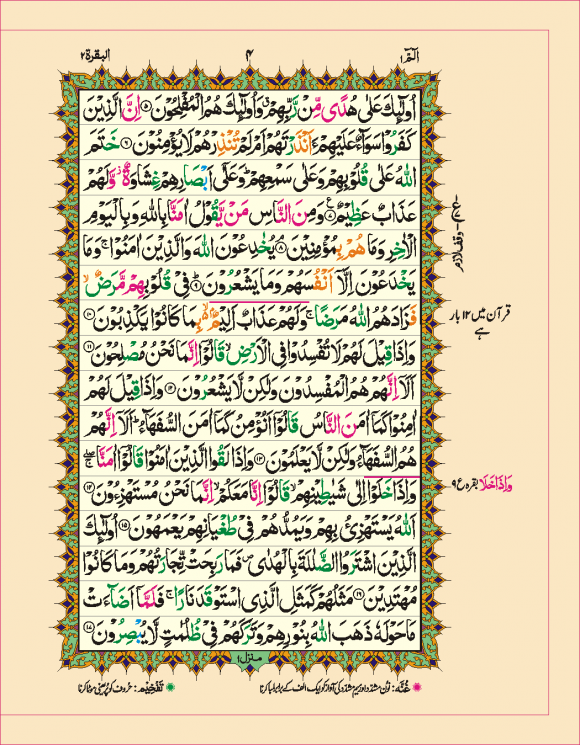 الٓمّٓ ۱ ۴ البقرة ۲
اُولٰٓئِكَ عَلٰى هُدًى مِّنْ رَّبِّهِمْ ۗ وَاُولٰٓئِكَ هُمُ الْمُفْلِحُوْنَ ۵ اِنَّ الَّذِيْنَ
كَفَرُوْا سَوَآءٌ عَلَيْهِمْ ءَاَنْذَرْتَهُمْ اَمْ لَمْ تُنْذِرْهُمْ لَا يُؤْمِنُوْنَ ۶ خَتَمَ
اللّٰهُ عَلٰى قُلُوْبِهِمْ وَعَلٰى سَمْعِهِمْ ؕ وَعَلٰٓى اَبْصَارِهِمْ غِشَاوَةٌ ۫ وَّلَهُمْ
عَذَابٌ عَظِيْمٌ ۷ ع وَمِنَ النَّاسِ مَنْ يَّقُوْلُ اٰمَنَّا بِاللّٰهِ وَبِالْيَوْمِ
الْاٰخِرِ وَمَا هُمْ بِمُؤْمِنِيْنَ ۘ ۸ يُخٰدِعُوْنَ اللّٰهَ وَالَّذِيْنَ اٰمَنُوْا ۚ وَمَا
يَخْدَعُوْنَ اِلَّاۤ اَنْفُسَهُمْ وَمَا يَشْعُرُوْنَ ؕ ۹ فِيْ قُلُوْبِهِمْ مَّرَضٌ ۙ
فَزَادَهُمُ اللّٰهُ مَرَضًا ۚ وَلَهُمْ عَذَابٌ اَلِيْمٌۢ ۙ بِمَا كَانُوْا يَكْذِبُوْنَ ۱۰
وَاِذَا قِيْلَ لَهُمْ لَا تُفْسِدُوْا فِي الْاَرْضِ ۙ قَالُوْٓا اِنَّمَا نَحْنُ مُصْلِحُوْنَ ۱۱
اَلَآ اِنَّهُمْ هُمُ الْمُفْسِدُوْنَ وَلٰكِنْ لَّا يَشْعُرُوْنَ ۱۲ وَاِذَا قِيْلَ لَهُمْ
اٰمِنُوْا كَمَآ اٰمَنَ النَّاسُ قَالُوْٓا اَنُؤْمِنُ كَمَآ اٰمَنَ السُّفَهَآءُ ؕ اَلَآ اِنَّهُمْ
هُمُ السُّفَهَآءُ وَلٰكِنْ لَّا يَعْلَمُوْنَ ۱۳ وَاِذَا لَقُوا الَّذِيْنَ اٰمَنُوْا قَالُوْٓا اٰمَنَّا ۚۖ
وَاِذَا خَلَوْا اِلٰى شَيٰطِيْنِهِمْ ۙ قَالُوْٓا اِنَّا مَعَكُمْ ۙ اِنَّمَا نَحْنُ مُسْتَهْزِءُوْنَ ۱۴
اَللّٰهُ يَسْتَهْزِئُ بِهِمْ وَيَمُدُّهُمْ فِيْ طُغْيَانِهِمْ يَعْمَهُوْنَ ۱۵ اُولٰٓئِكَ
الَّذِيْنَ اشْتَرَوُا الضَّلٰلَةَ بِالْهُدٰى ۪ فَمَا رَبِحَتْ تِّجَارَتُهُمْ وَمَا كَانُوْا
مُهْتَدِيْنَ ۱۶ مَثَلُهُمْ كَمَثَلِ الَّذِي اسْتَوْقَدَ نَارًا ۚ فَلَمَّآ اَضَآءَتْ
مَا حَوْلَهٗ ذَهَبَ اللّٰهُ بِنُوْرِهِمْ وَتَرَكَهُمْ فِيْ ظُلُمٰتٍ لَّا يُبْصِرُوْنَ ۱۷
وقف لازم
قرآن میں ۱۲ بار
ہے
وَاِذَا خَلَا بقرہ ع ۹
منزل ۱
غُنَّه: نون مشدد اور میم مشدد کی آواز کو ایک الف کے برابر لمبا کرنا تَفْخِيْم: حروف کو پُر یعنی موٹا کرنا